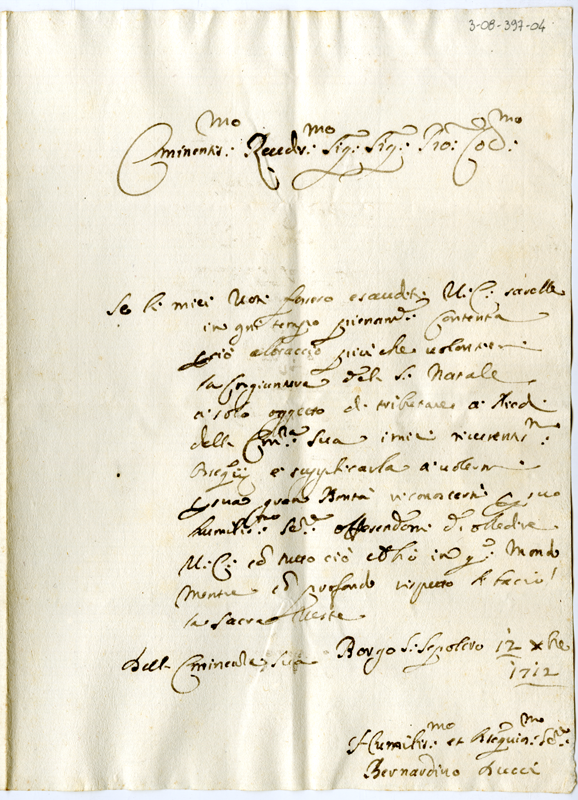 3-08-397-04
Eminentis:mo Reudr:mo Sig: Sig: Pro: Col:mo
Se li miei Voti fosero esauditi V: E: sarebbe
in gni tempo pienam: Contenta
Perciò abraccio più che volontieri
la Congiuntura della S: Natale
a solo oggetto di tributare a Piedi
della Em:za Sua i miei riuerentis:mi
Ossequij e supplicarla a volermi
P sua gran Bontà riconoscermi P suo
humilis:mo Se:re offerendomi di obbedire
V: E: con tutto ciò ch'hò in q:o Mondo
Mentre con profondo rispetto le bacio
la Sacra Veste
Dell Eminenza Sua Borgo S: Sepolcro 12 Xbre
1712
Humilis:mo et Ossequis:mo Se:re
Bernardino Ducci